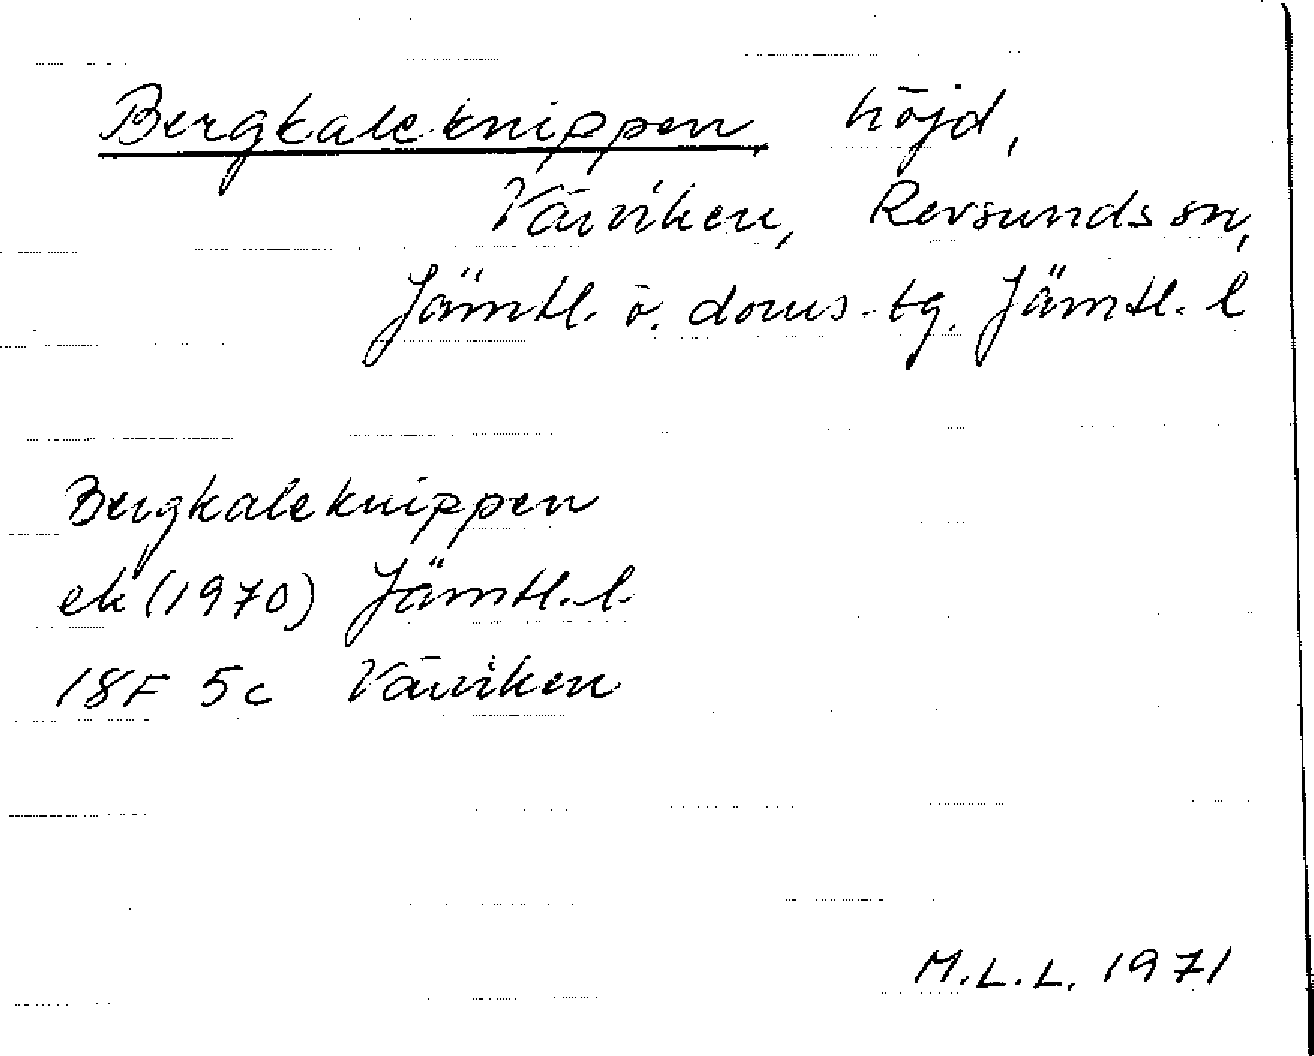 Bergkaleknippen, höjd,
Väviken, Revsunds sn,
Jämtl. ö. doms. tg. Jämtl. l
Bergkaleknippen
ek (1970) Jämtl. l.
18F 5c Väviken
M.L.L. 1971